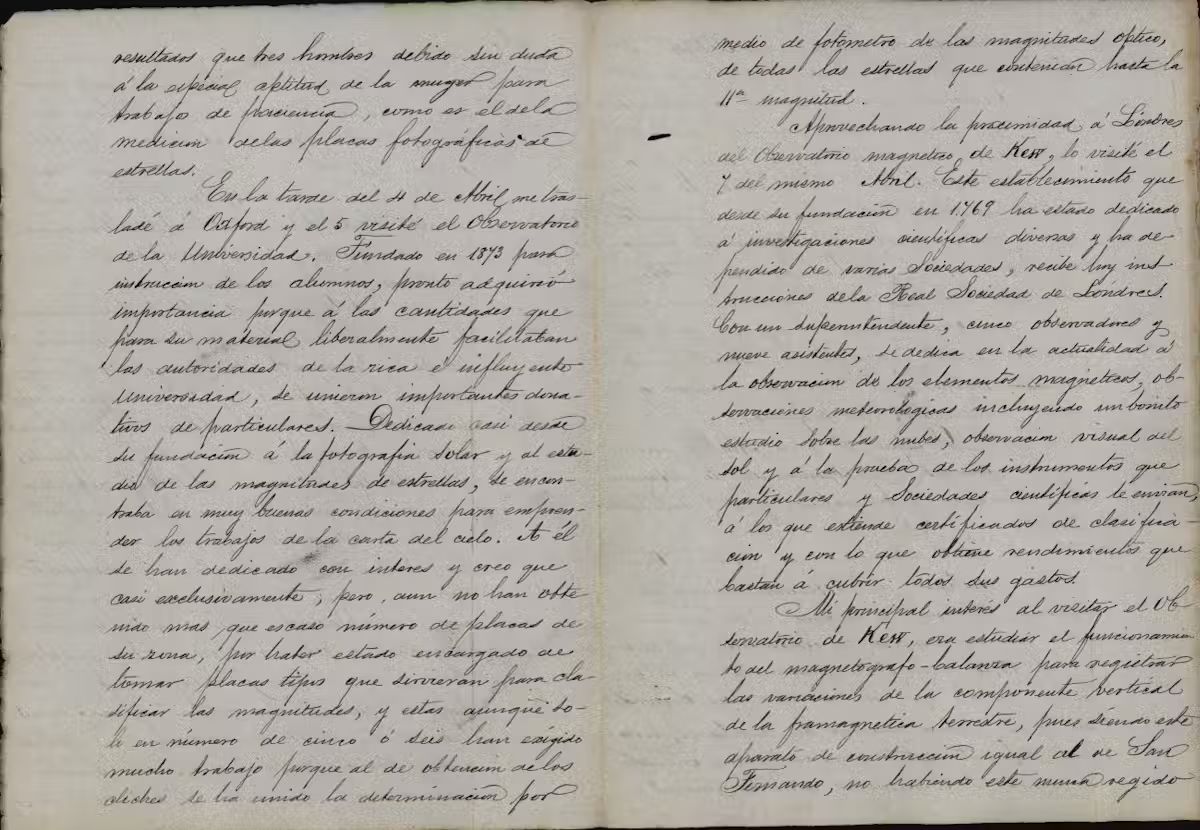 resultados que tres hombres debido sin duda
á la especial aptitud de la muger para
trabajos de paciencia, como es el dela
medicion delas placas fotográficas de
estrellas.
En la tarde del 4 de Abril me tras-
ladé á Oxford y el 5 visité el Observatorio
de la Universidad. Fundado en 1873 para
instruccion de los alumnos, pronto adquirió
importancia porque á las cantidades que
para su material liberalmente facilitaban
las autoridades de la rica é influyente
Universidad, se unieron importantes dona-
tivos de particulares. Dedicado casi desde
su fundacion á la fotografia solar y al estu-
dio de las magnitudes de estrellas, se encon-
traba en muy buenas condiciones para empren-
der los trabajos de la carta del cielo. A él
se han dedicado con interes y creo que
casi exclusivamente, pero, aun no han obte
nido mas que escaso número de placas de
su zona, por haber estado encargado de
tomar placas tipos que sirvieran para cla-
sificar las magnitudes, y estas aunque so-
lo en número de cinco ó seis han exigido
mucho trabajo porque al de obtencion de los
clichés se ha unido la determinacion por
medio de fotometro de las magnitudes optico,
de todas las estrellas que contenian hasta la
11ª magnitud.
Aprovechando la proximidad á Lóndres
del Observatorio magnetico de Kew, lo visité el
7 del mismo Abril. Este establecimiento que
desde su fundacion en 1.769 ha estado dedicado
á investigaciones cientificas diversas y ha de
pendido de varias Sociedades, recibe hoy ins
trucciones dela Real Sociedad de Lóndres.
Con un Superintendente, cinco observadores y
nueve asistentes, se dedica en la actualidad á
la observacion de los elementos magnéticos, ob-
servaciones meteorologicas incluyendo un bonito
estudio sobre las nubes, observacion visual del
sol y á la prueba de los instrumentos que
particulares y Sociedades cientificas le envian,
á los que extiende certificados de clasifica-
cion y con lo que obtiene rendimientos que
bastan á cubrir todos sus gastos.
Mi principal interés al visitar el Ob-
servatorio de Kew, era estudiar el funcionamien
to del magnetografo-balanza para registrar
las variaciones de la componente vertical
de la framagnetica terrestre, pues siendo este
aparato de construccion igual al de San
Fernando, no habiendo este nunca regido